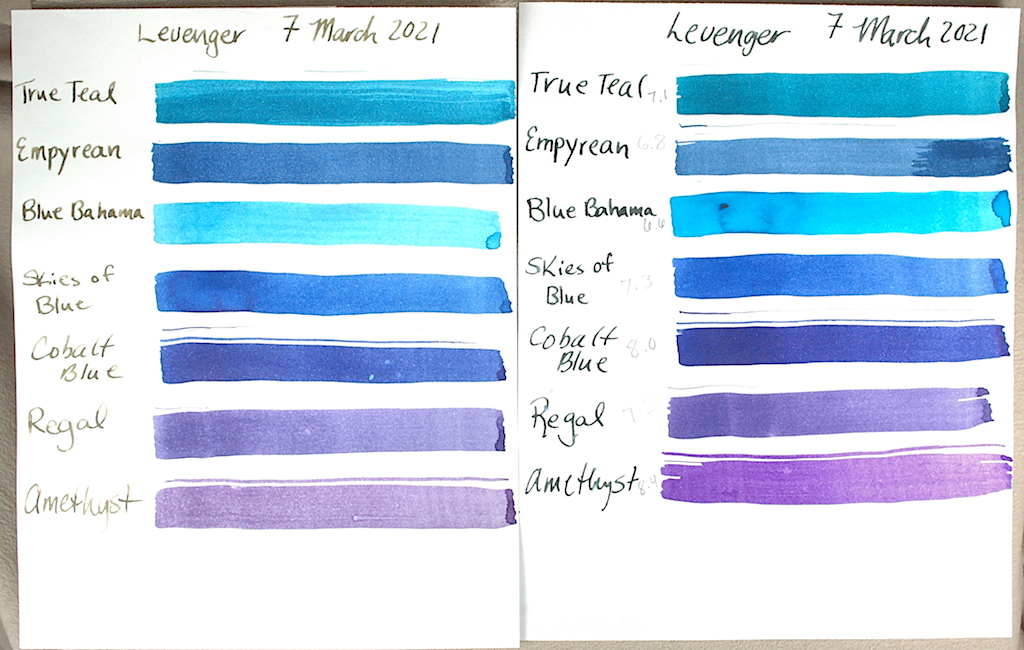 Levenger 7 March 2021
True Teal
Empyrean
Blue Bahama
Skies of
Blue
Cobalt
Blue
Regal
Amethyst
Levenger 7 March 2021
True Teal 7.1
Empyrean 6.8
Blue Bahama
6.6
Skies of
Blue 7.3
Cobalt
Blue 8.0
Regal
Amethyst 8.4